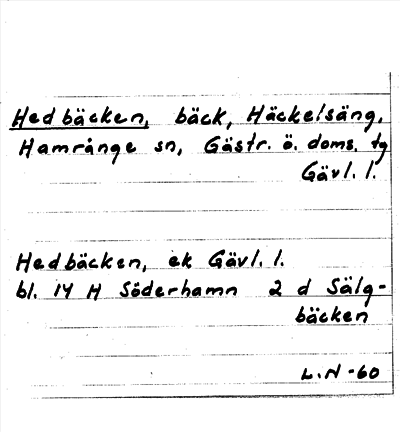 Hedbäcken, bäck, Häckelsäng,
Hamrånge sn, Gästr. ö. doms. tg
Gävl. l.
Hedbäcken, ek Gävl. l.
bl. 14 H Söderhamn 2 d Sälg-
bäcken
L.N -60